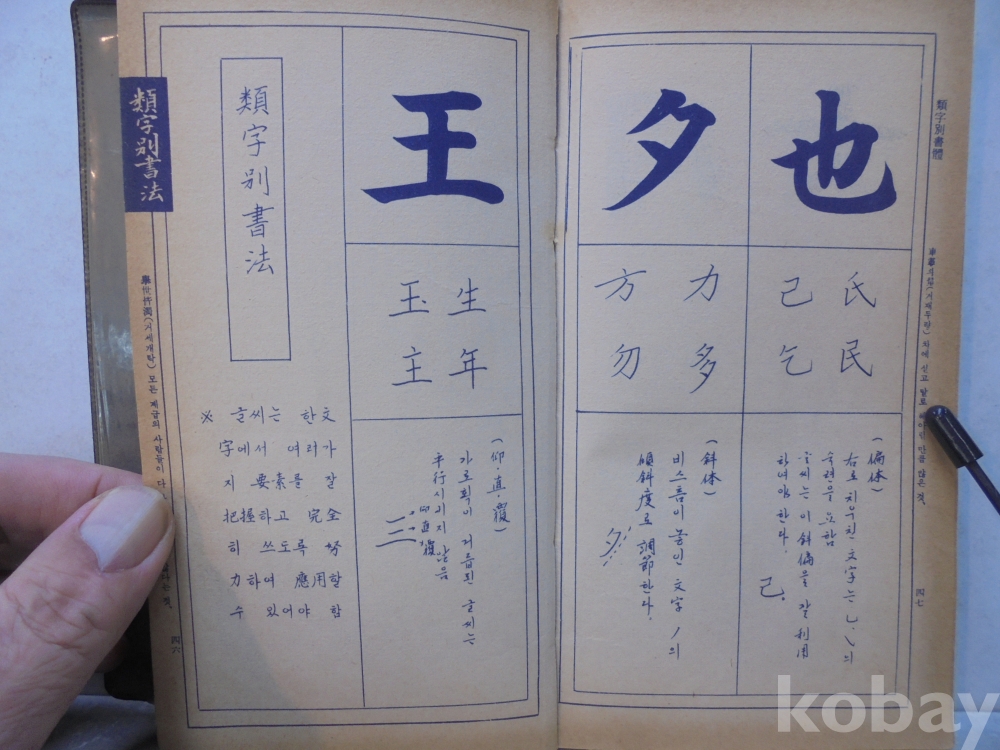 類字別書體
四七
也
氏
民
己
乞
(偏体)
右로 치우친 文字는 乚.㇏의
숙련을 요함
글씨는 이 斜偏을 잘 利用
하여야 한다.
己
夕
力
多
方
勿
(斜体)
비스듬이 놓인 文字 丿의
傾斜度로 調節한다.
夕
王
生
年
玉
主
(仰·直·覆)
가로획이 거듭된 글씨는
平行시키지 않음
仰直覆
三
類字別書法
※ 글씨는 한文
字에서 여러가
지 要素를 잘
把握하고 完全
히 쓰도록 努
力하여 應用할
수 있어야 함
類字別書法
擧世皆濁(거세개탁) 모든 계급의 사람들이 다
四六
kobay